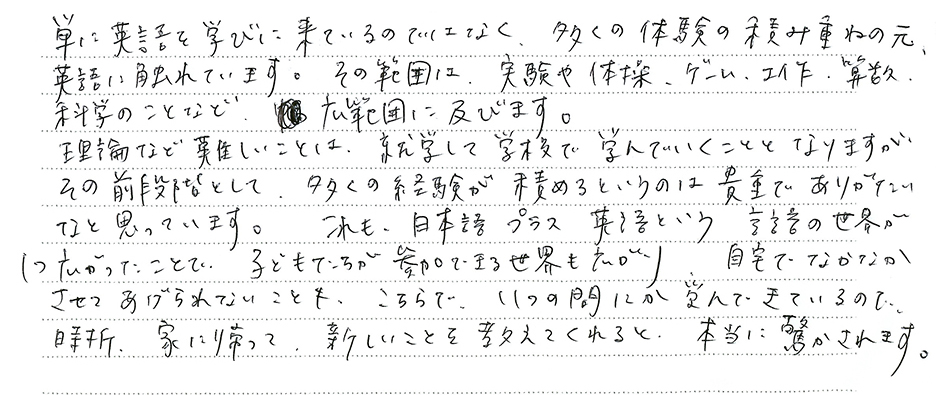 単に英語を学びに来ているのではなく、多くの体験の積み重ねの元、
英語に触れています。その範囲は、実験や体操、ゲーム、工作、算数、
科学のことなど、広範囲に及びます。
理論など難しいことは、就学して学校で学んでいくこととなりますが、
その前段階として、多くの経験が積めるというのは貴重でありがたい
なと思っています。これも、日本語プラス英語という言語の世界が
1つ広がったことで、子どもたちが参加できる世界も広がり、自宅でなかなか
させてあげられないことを、こちらで、いつの間にか学んできているので、
時折、家に帰って、新しいことを教えてくれると、本当に驚かされます。